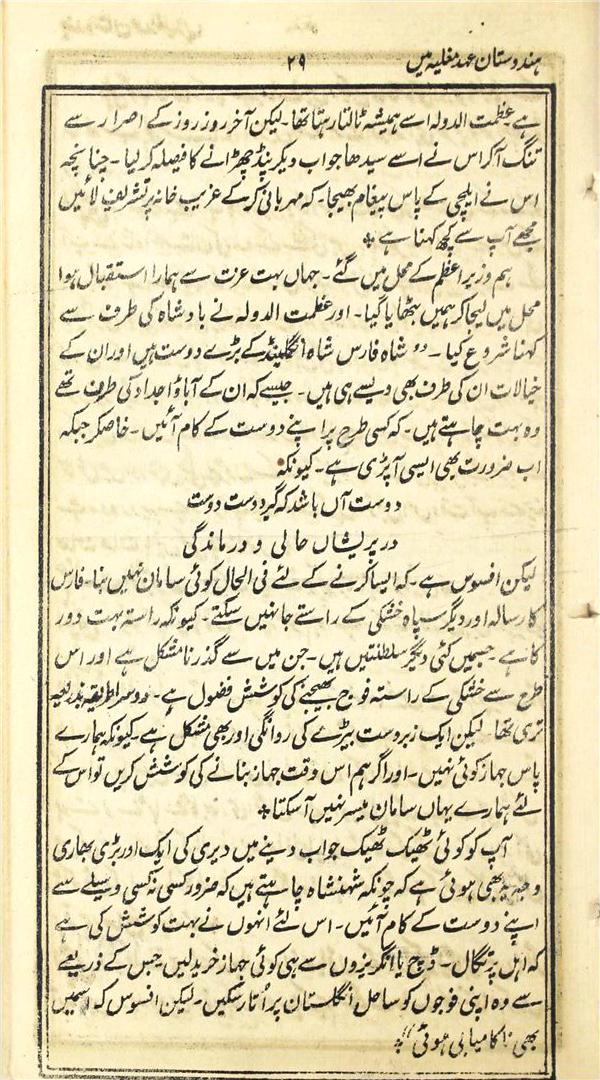 ہندوستان عہد مغلیہ میں
۲۹
ہے عظمت الدولہ اسے ہمیشہ ٹالتا رہتا تھا۔ لیکن آخر روز روز کے اصرار سے
تنگ آکر اس نے اسے سیدھا جواب دیکر پنڈ چھڑانے کا فیصلہ کر لیا۔ چنانچہ
اس نے ایلچی کے پاس پیغام بھیجا۔ کہ مہربانی کر کے غریب خانہ پر تشریف لائیں
مجھے آپ سے کچھ کہنا ہے ٭
ہم وزیر اعظم کے محل میں گئے۔ جہاں بہت عزت سے ہمارا استقبال ہوا
محل میں لیجا کر ہمیں بٹھایا گیا۔ اور عظمت الدولہ نے بادشاہ کی طرف سے
کہنا شروع کیا۔ ”شاہ فارس شاہ انگلینڈ کے بڑے دوست ہیں اور ان کے
خیالات ان کی طرف بھی ویسے ہی ہیں۔ جیسے کہ ان کے آباؤ اجداد کی طرف تھے
وہ بہت چاہتے ہیں۔ کہ کسی طرح پر اپنے دوست کے کام آئیں۔ خاصکر جبکہ
اب ضرورت بھی ایسی آپڑی ہے۔ کیونکہ
دوست آں باشد کہ گیرد دست دوست
در پریشاں حالی و درماندگی
لیکن افسوس ہے۔ کہ ایسا کرنے کے لئے فی الحال کوئی سامان نہیں بنا۔ فارس
کا رسالہ اور دیگر سپاہ خشکی کے راستے جا نہیں سکتے۔ کیونکہ راستہ بہت دور
کا ہے۔ جسمیں کئی دیگر سلطنتیں ہیں۔ جن میں سے گذرنا مشکل ہے اور اس
طرح سے خشکی کے راستہ فوج بھیجنے کی کوشش فضول ہے۔ دوسرا طریقہ بذریعہ
تری تھا۔ لیکن ایک زبردست بیڑے کی روانگی اور بھی مشکل ہے۔ کیونکہ ہمارے
پاس جہاز کوئی نہیں۔ اور اگر ہم اس وقت جہاز بنانے کی کوشش کریں تو اس کے
لئے ہمارے یہاں سامان میسر نہیں آسکتا ٭
آپ کو کوئی ٹھیک ٹھیک جواب دینے میں دیری کی ایک اور بڑی بھاری
وجہ یہ بھی ہوئی ہے کہ چونکہ شہنشاہ چاہتے ہیں کہ ضرور کسی نہ کسی وسیلے سے
اپنے دوست کے کام آئیں۔ اس لئے انہوں نے بہت کوشش کی ہے
کہ اہل پرتگال۔ ڈچ یا انگریزوں سے ہی کوئی جہاز خرید لیں جس کے ذریعے
سے وہ اپنی فوجوں کو ساحل انگلستان پر اُتار سکیں۔ لیکن افسوس کہ اسمیں
بھی ناکامیابی ہوئی“ ٭